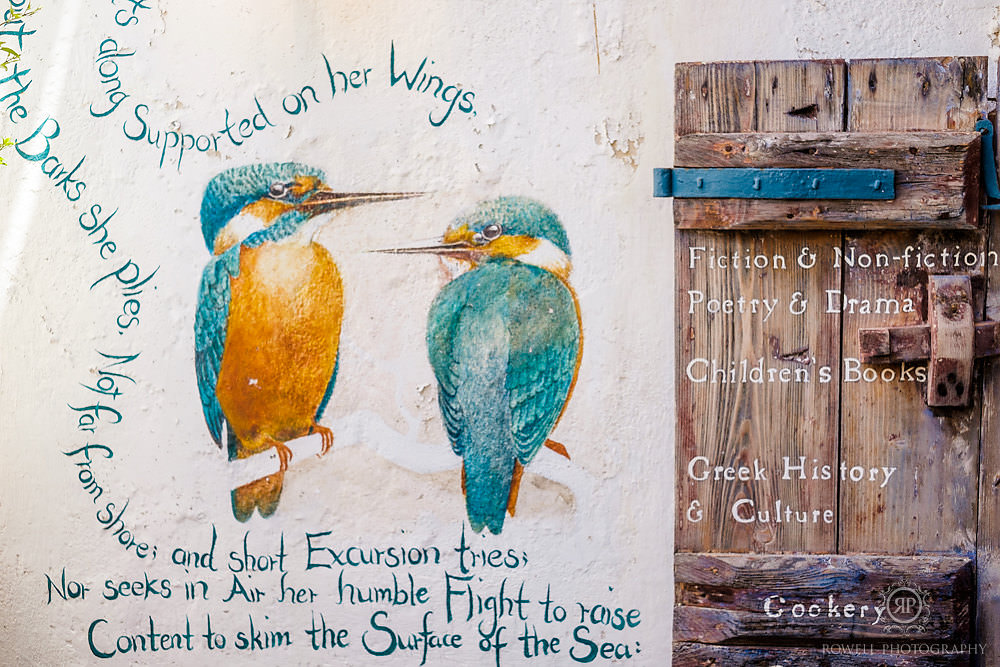 along Supported on her Wings.
the Barks she plies, Not far from shore; and short Excursion tries;
Nor seeks in Air her humble Flight to raise
Content to skim the Surface of the Sea:
Fiction & Non-fiction
Poetry & Drama
Children's Books
Greek History
& Culture
Cookery
RP
ROWELL PHOTOGRAPHY